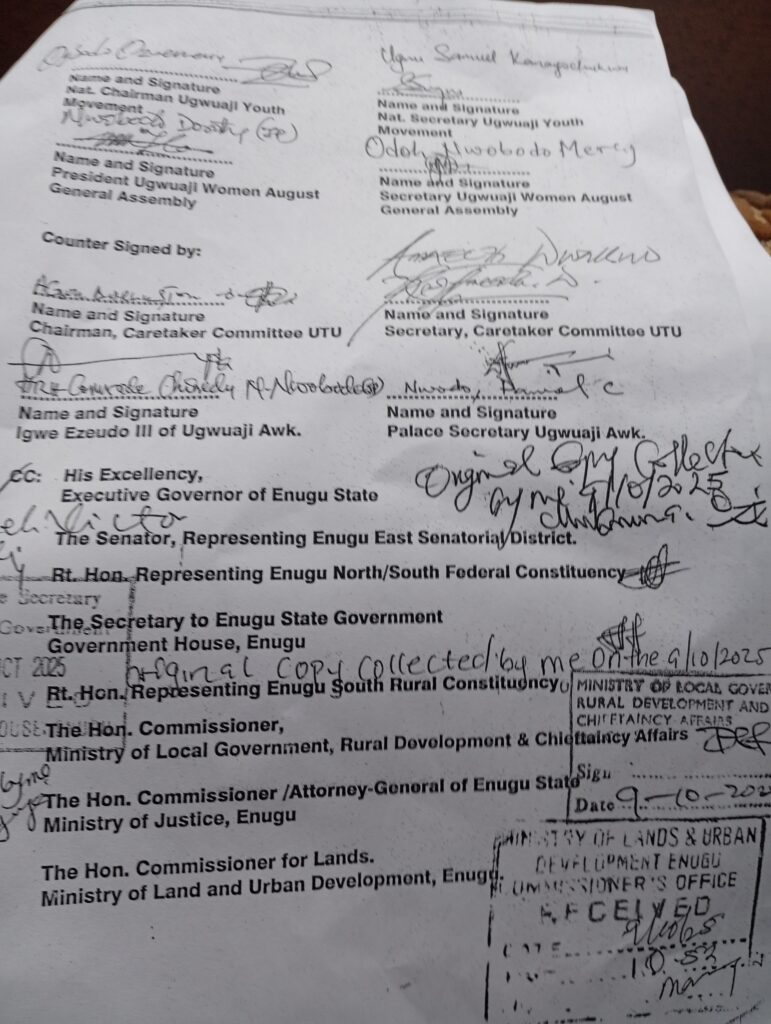 Ugwu Samuel
Name and Signature
Nat. Chairman Ugwuaji Youth
Movement
Name and Signature
Nat. Secretary Ugwuaji Youth
Movement
Nwobodo Dorothy (JP)
Name and Signature
President Ugwuaji Women August
General Assembly
Odoh Nwobodo Mercy
Name and Signature
Secretary Ugwuaji Women August
General Assembly
Counter Signed by:
Name and Signature
Chairman, Caretaker Committee UTU
Name and Signature
Secretary, Caretaker Committee UTU
Name and Signature
Igwe Ezeudo III of Ugwuaji Awk.
Nwodo, Daniel C
Name and Signature
Palace Secretary Ugwuaji Awk.
CC: His Excellency,
Executive Governor of Enugu State
Original Copy Collected
by me 9/10/2025
The Senator, Representing Enugu East Senatorial District.
Rt. Hon. Representing Enugu North/South Federal Constituency
The Secretary to Enugu State Government
Government House, Enugu
original copy collected by me on the 9/10/2025
Rt. Hon. Representing Enugu South Rural Constituency
The Hon. Commissioner,
Ministry of Local Government, Rural Development & Chieftaincy Affairs
The Hon. Commissioner /Attorney-General of Enugu State
Ministry of Justice, Enugu
The Hon. Commissioner for Lands.
Ministry of Land and Urban Development, Enugu.
e Secretary
Government
CT 2025
MINISTRY OF LOCAL GOVER
RURAL DEVELOPMENT AND
CHIEFTAINCY AFFAIRS
Sign
Date 9-10-202
MINISTRY OF LANDS & URBAN
DEVELOPMENT ENUGU
COMMISSIONER'S OFFICE
RECEIVED
10.53